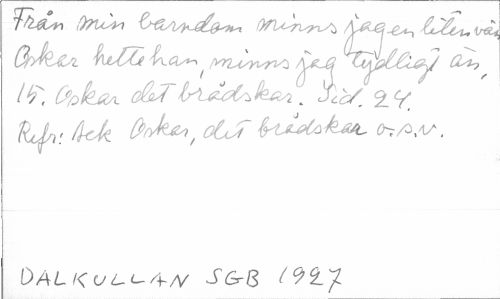 Från min barndom minns jag en liten vän
Oskar hette han, minns jag tydligt än,
15. Oskar det brådskar. Sid. 24.
Refr: Ack Oskar, det brådskar o.s.v.
DALKULLAN SGB 1927